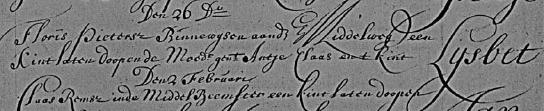 Den 26 Do
Floris Pietersz Binnewysen aande Middelweg een
Kint laten doopende Moeder gent Antje Claas en t kint Lysbet
Den 2 Februari
Claas Remsz inde Middel Beemster een Kint laten doopen